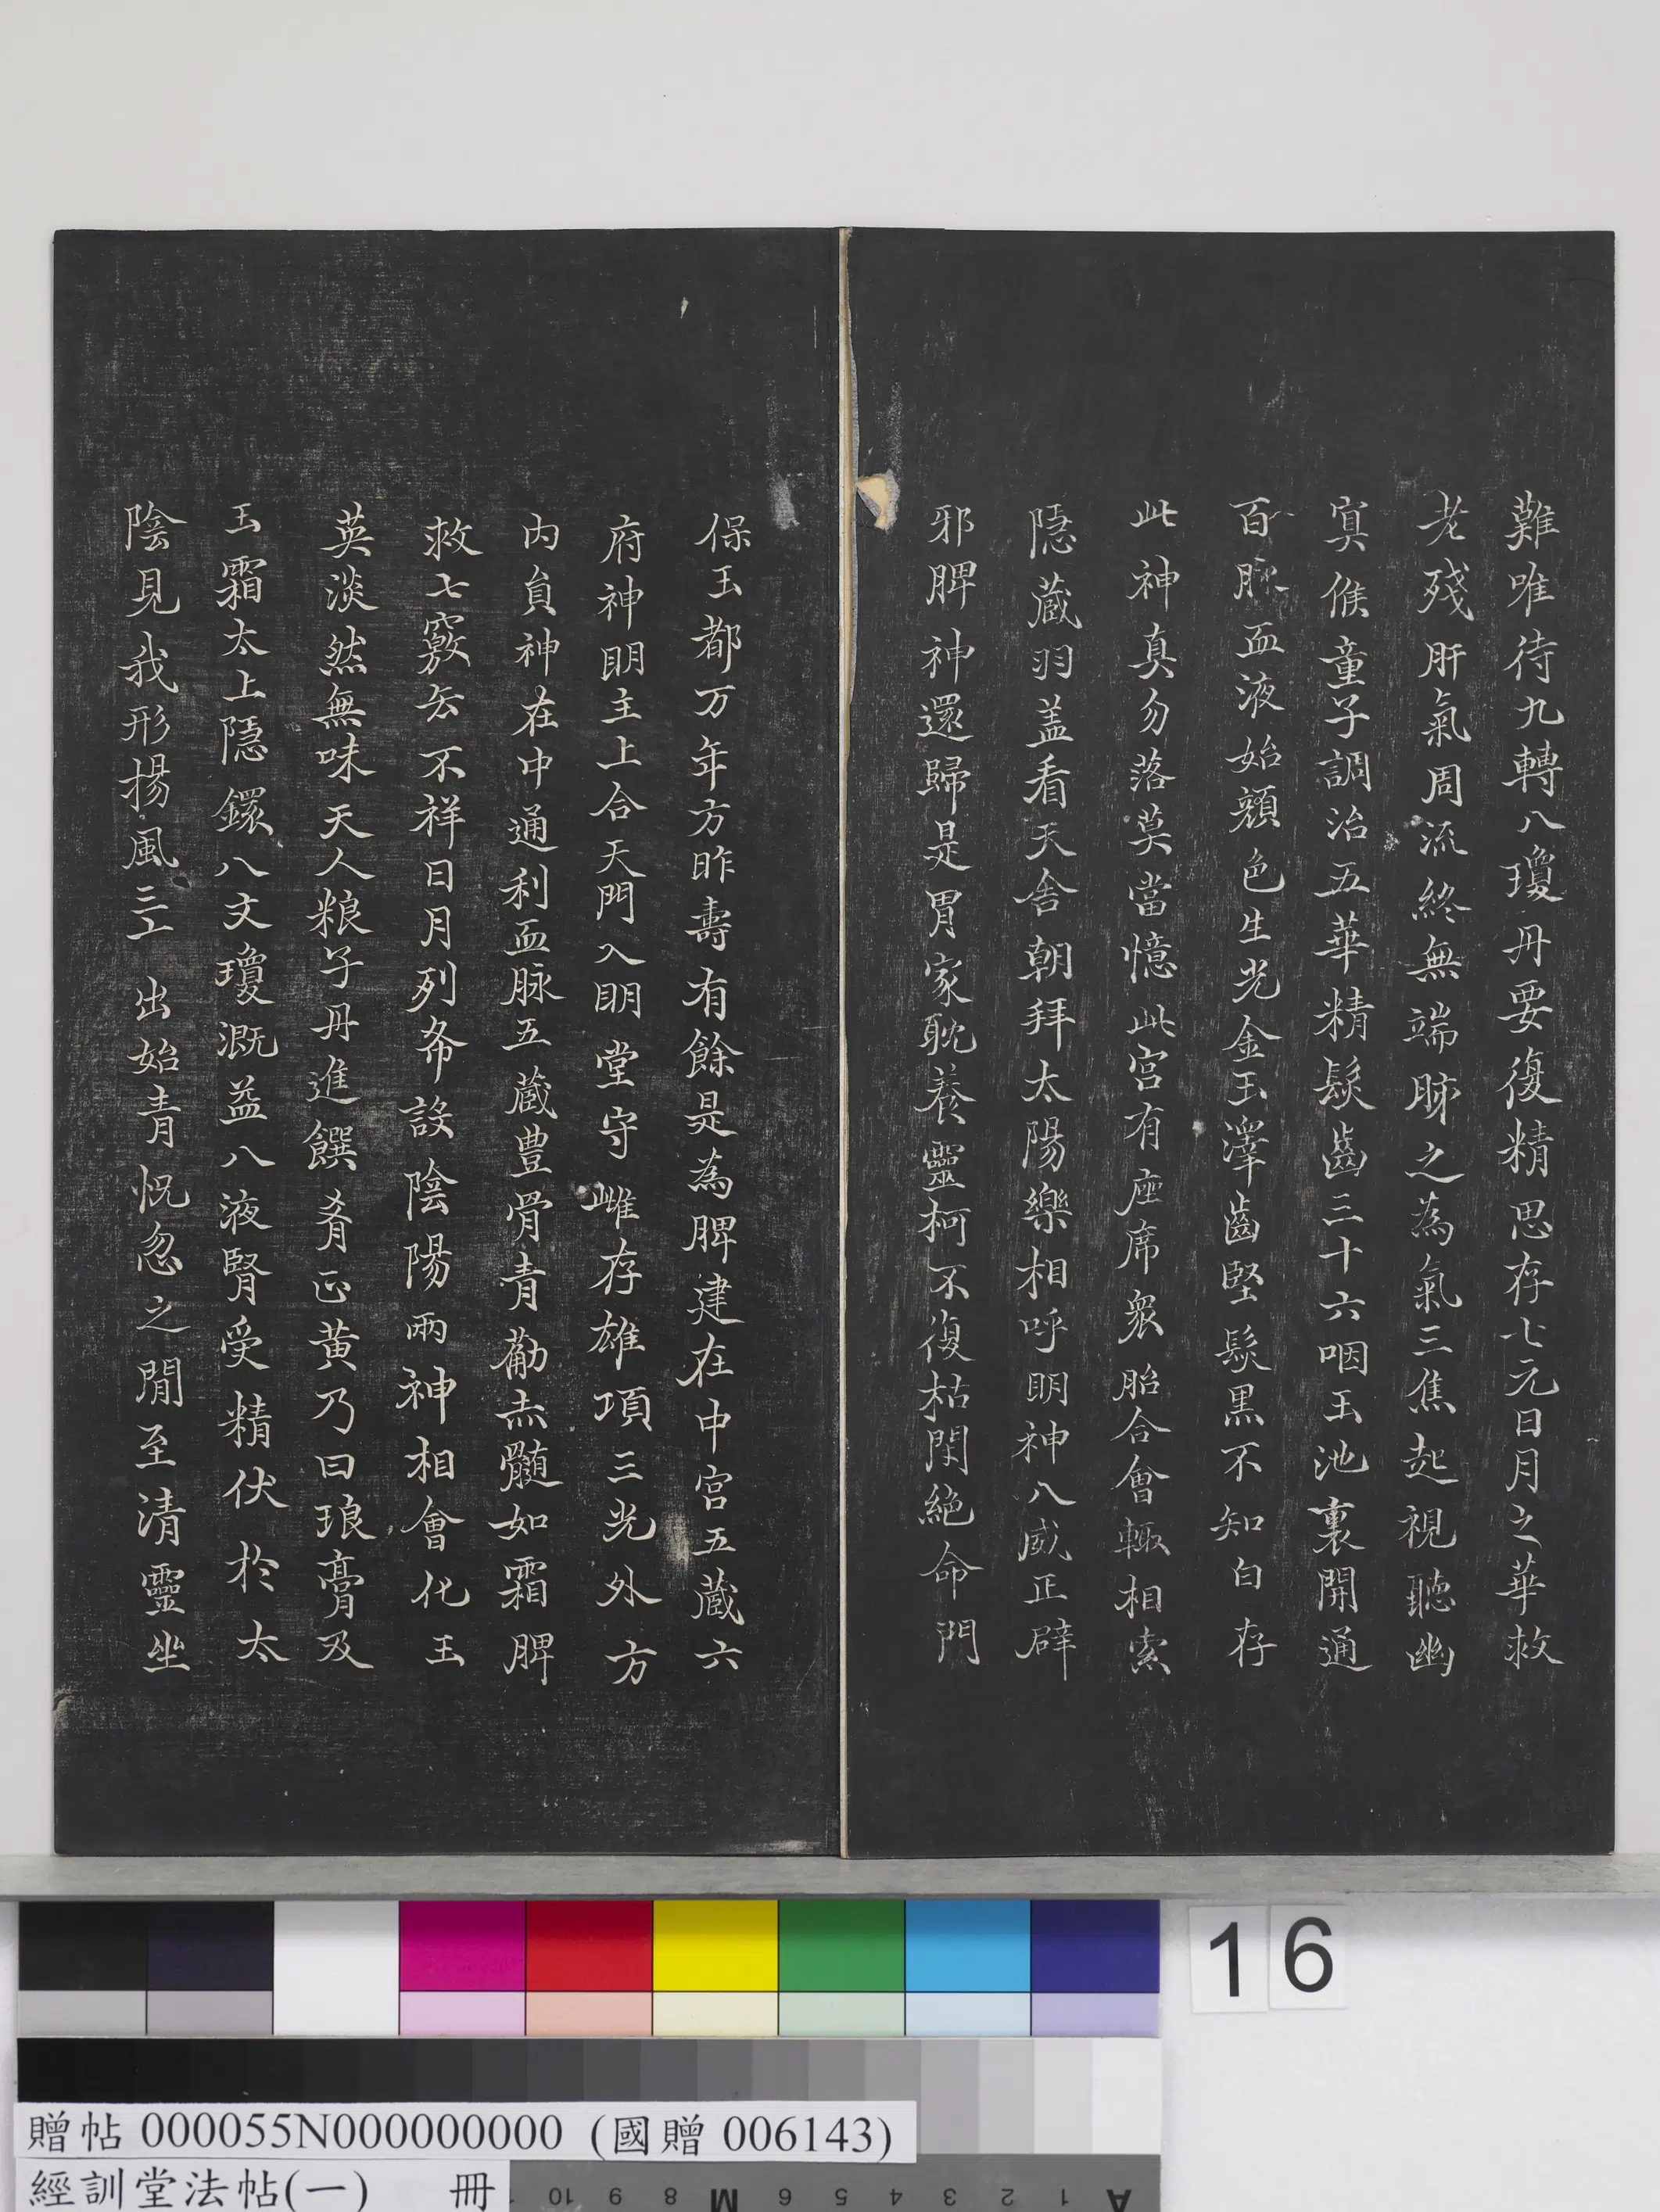 難唯待九轉八瓊丹要復精思存七元日月之華救
老殘肝氣周流終無端肺之為氣三焦起視聽幽
冥候童子調治五華精髮齒三十六咽玉池裏開通
百脉血液始顏色生光金玉澤齒堅髮黑不知白存
此神真勿落莫當憶此宮有座席衆胎合會輙相索
隱蔵羽盖看天舍朝拜太陽樂相呼明神八威正辟
邪脾神還歸是胃家耽養靈柯不復枯閉絶命門
保玉都万年方昨壽有餘是為脾建在中宮五蔵六
府神明主上合天門入明堂守雌存雄項三光外方
内貟神在中通利血脉五蔵豊骨青勸赤髓如霜脾
救七竅去不祥日月列布設陰陽兩神相會化玉
英淡然無味天人粮子丹進饌肴正黄乃曰琅膏及
玉霜太上隱鐶八文瓊溉益八液腎受精伏於太
陰見我形揚風三𠀋出始青怳忽之間至清靈坐
16
贈帖 000055N000000000 (國贈 006143)
經訓堂法帖(一) 冊
A 1 2 3 4 5 6 M 8 9 10